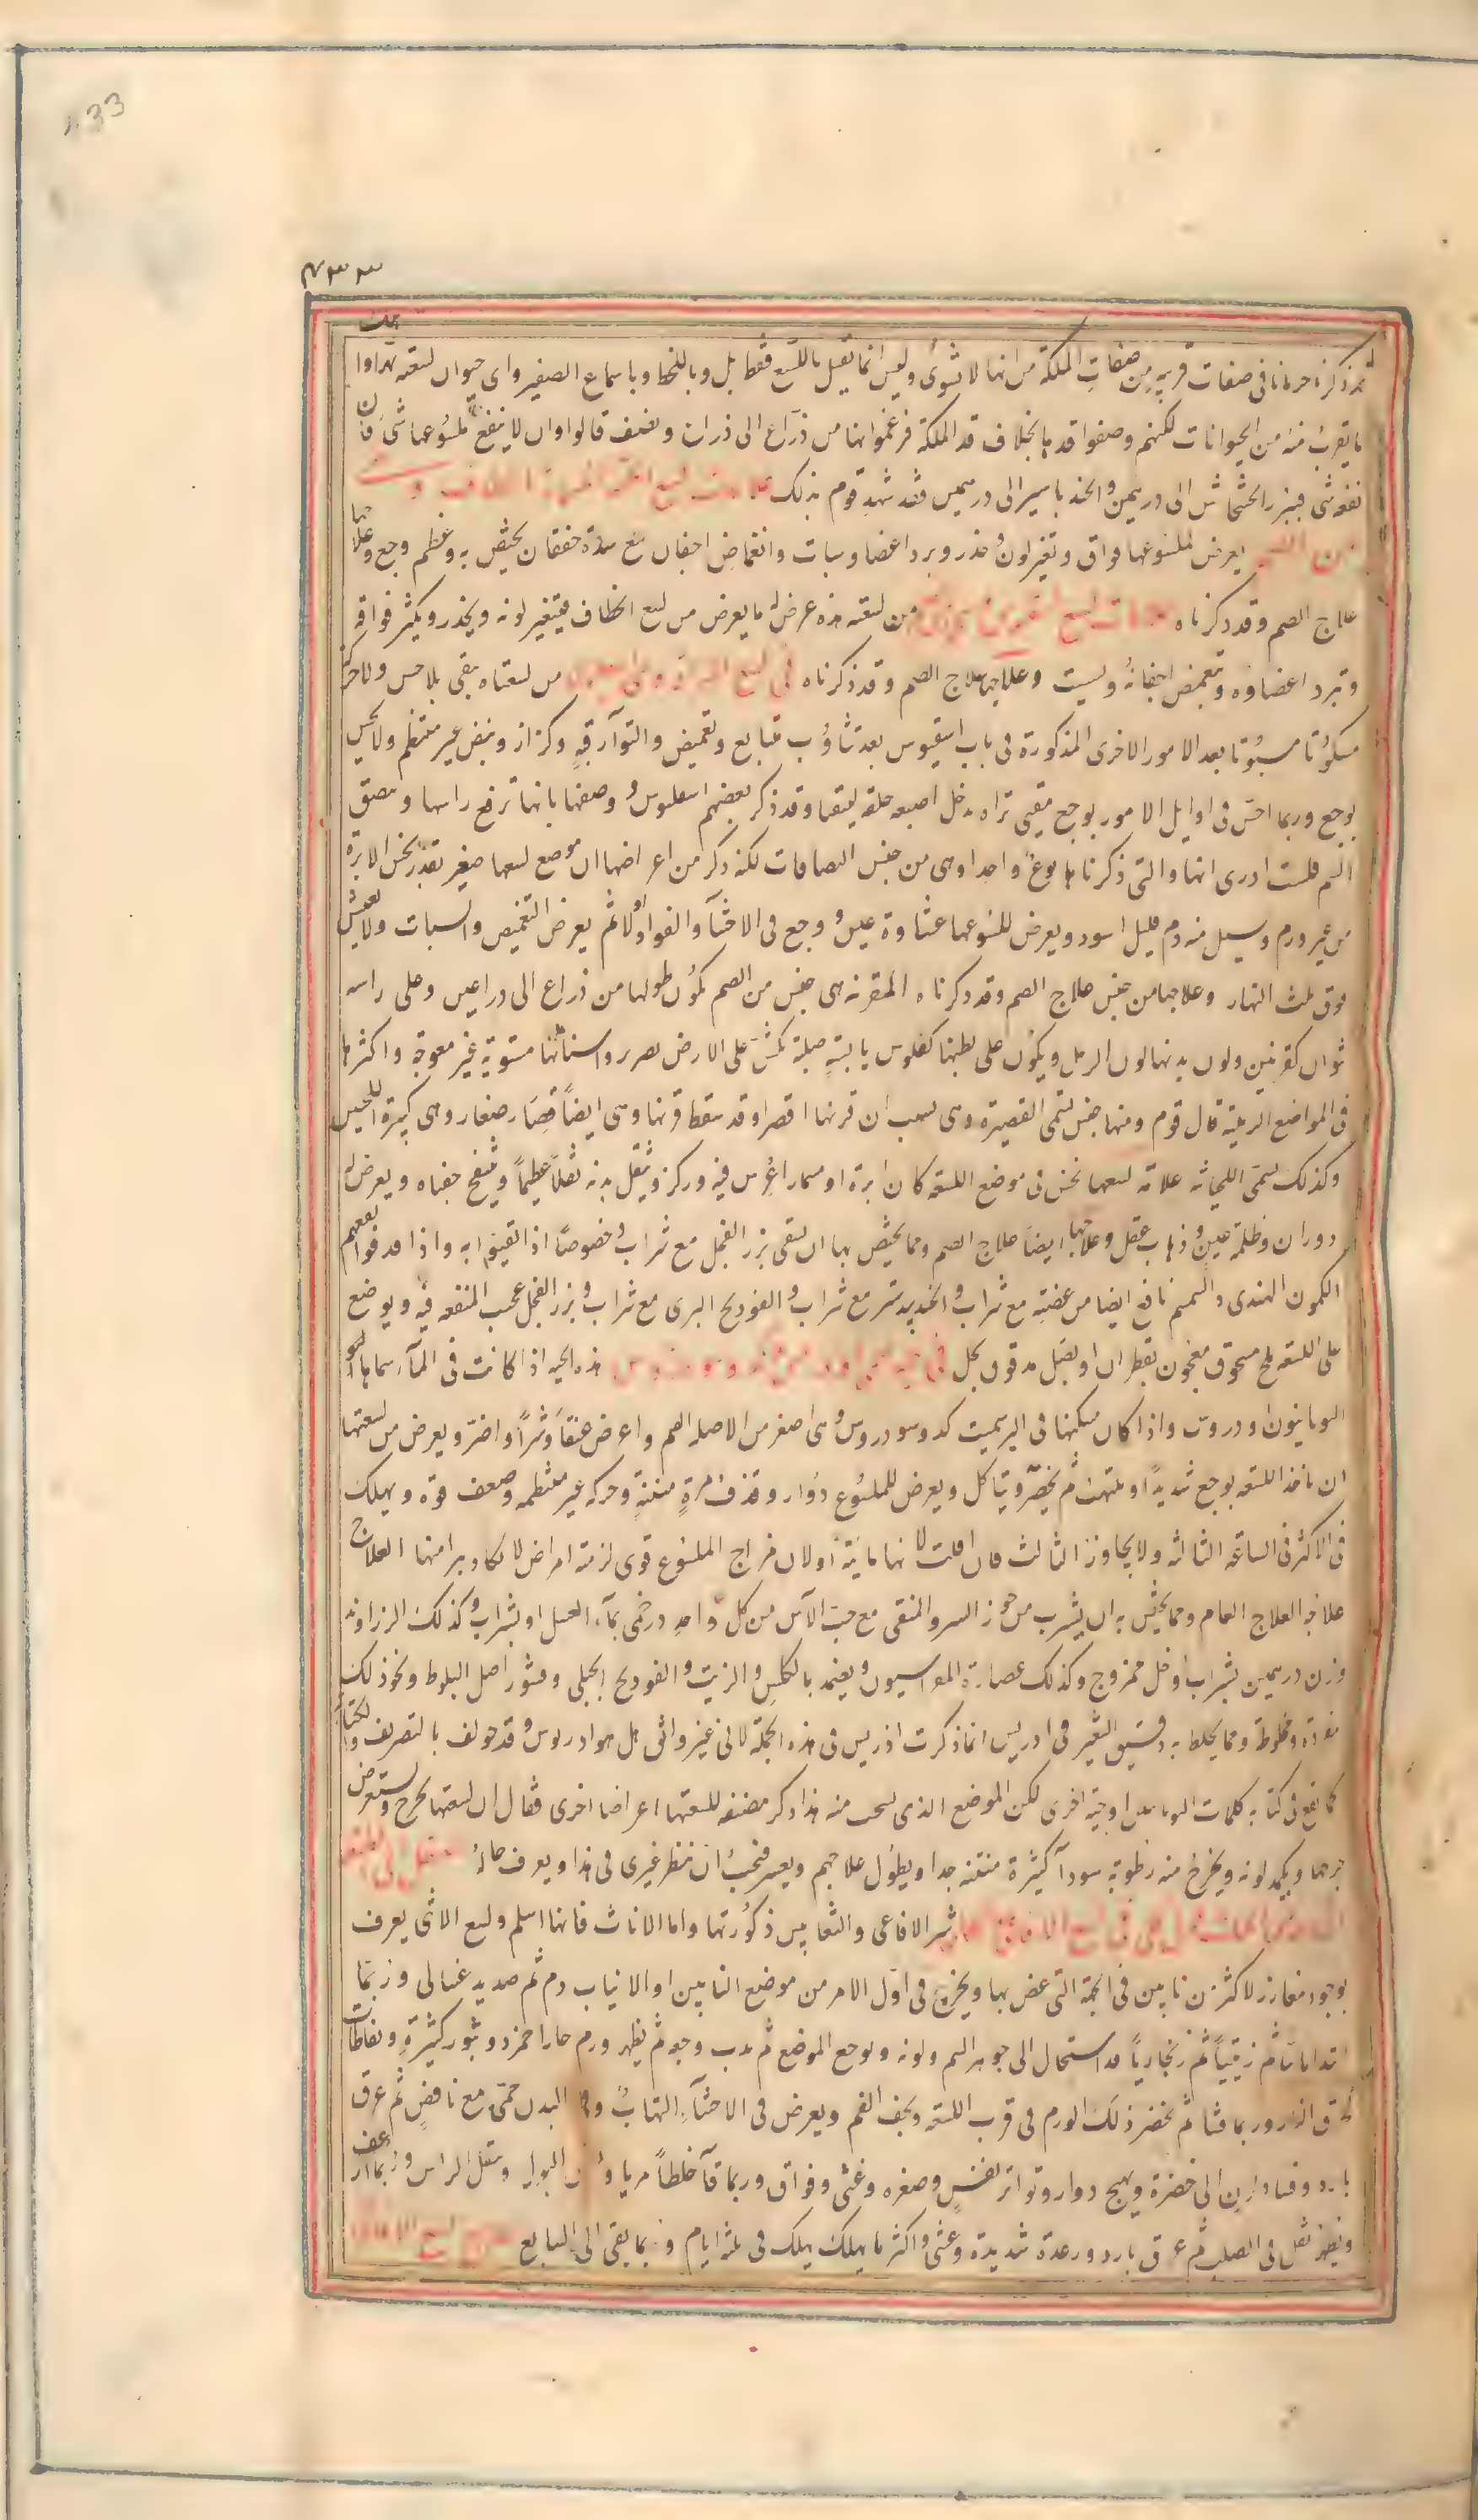 433
٤٣٣
ذكرناه حرمانا فى صفات قريبه من صفات الملكة من انها لا تشوى وليس انما تقتل باللسع فقط بل وباللحظ وباسماع الصفير واى حيوان لسعته تهراوا
ما يقرب منه من الحيوانات لكنهم وصفوا قدها بخلاف قد الملكة فزعموا انها من ذراع الى ذراع ونصف قالوا وان لا ينفع ملسوعها شى فان
نفعه شى فبزر الخشخاش الى درهمين والجند باسير الى درهمين فقد شهد قوم بذلك
يعرض لملسوعها فواق وتغير لون وخدر وبرد اعضا وسبات وانغماض اجفان مع شدة خفقان يختص به وعظم وجع وعلاجها
علاج الصم وقد ذكرناه من لسعته هذه عرض له ما يعرض من لسع الخطاف فيتغير لونه ويخدر ويكثر فواقه
وتبرد اعضاوه وتغمض اجفانه ويسبت وعلاجها علاج الصم وقد ذكرناه فى لسع من لسعتاه بقى بلا حس ولا حركة
مسكوتا مسبوتا بعد الامور الاخرى المذكورة فى باب اسقيوس بعد تثاؤب متتابع وتغميض والتوآ رقبة وكزاز ونبض غير منتظم ولا يحس
بوجع وربما احس فى اوايل الامور بوجع مقيى تراه يدخل اصبعه حلقه ليتقيا وقد ذكر بعضهم اسفلوس ووصفها بانها ترفع راسها وتبصق
السم فلست ادرى انها والتى ذكرناها نوعا واحدا وهى من جنس البصاقات لكنه ذكر من اعراضها ان موضع لسعها صغير بقدر نخس الابرة
من غير ورم ويسيل منه دم قليل اسود ويعرض للسوعها غشاوة عين ووجع فى الاحشآ والفواد اولا ثم يعرض التغميض والسبات ولا يعيش
فوق ثلث النهار وعلاجها من جنس علاج الصم وقد ذكرناه المقرنه هى جنس من الصم يكون طولها من ذراع الى ذراعين وعلى راسه
نتوان كقرنين ولون بدنها لون الرمل ويكون على بطنها كفلوس يابسة صلبة تكش على الارض بصرير واسنانها مستوية غير معوجة واكثرها
فى المواضع الرملية قال قوم ومنها جنس تسمى القصيرة وهى بسبب ان قرنها اقصر او قد سقط قرنها وهى ايضا قصار صغار وهى كبيرة اللحيين
وكذلك تسمى اللحيانية علامة لسعها نخس فى موضع اللسعة كان ابرة او مسمارا غرس فيه وركز ويثقل بدنه ثقلا عظيما وينتفخ جفناه ويعرض له
دوران وظلمة عين وذهاب عقل وعلاجها ايضا علاج الصم ومما يختص بها ان يسقى بزر الفجل مع شراب وخصوصا اذا تقيوا به واذا قذفوا نفعهم
الكمون الهندى والسمسم نافع ايضا من عضته مع شراب والجندبيدستر مع شراب والفوديج البرى مع شراب وبزر الفجل عجيب المنفعه فيه ويوضع
على اللسعة ملح مسحوق معجون بقطران او بصل مدقوق بخل فى هذه الحيه اذا كانت فى المآ سماها
اليونانيون اودروس واذا كان مسكنها فى البر سميت كدوسودروس وهى اصغر من الاصله الصم واعرض عنقا وشرا واضر ويعرض من لسعتها
ان ياخذ اللسعة بوجع شديد او يلتهب ثم يخضر ويتاكل ويعرض للملسوع دوار وقذف مرة منتنة وحركه غير منتظمه وضعف قوة ويهلك
فى الاكثر فى الساعة الثالثه ولا يجاوز الثالث فان افلت لانها مايية او لان مزاج الملسوع قوى لزمته امراض لا يكاد يبرا منها العلاج
علاجه العلاج العام ومما يختص به ان يشرب من جوز السرو المنقى مع حب الآس من كل واحد درخمى بمآء العسل او بشراب وكذلك الزراوند
وزن درهمين بشراب او خل ممزوج وكذلك عصارة الفراسيون ويضمد بالكلس والزيت والفوديج الجبلى وقشور اصل البلوط ونحو ذلك
مفردة ومخلوطة ومما يخلط به دقيق الشعير فى ادريس انما ذكرت اذريس فى هذه الجملة لانى غير واثق هل هو ادريوس وقد خولف بالتصريف
كما يقع فى كتابه كلمات اليونانيين او حية اخرى لكن الموضع الذى نسخت منه هذا ذكر مصنفه للسعتها اعراضا اخرى فقال ان لسعتها تجرح ويتعرض
جرحها ويكمد لونه ويخرج منه رطوبة سودآ كثيرة منتنه جدا ويطول علاجهم ويعسر فيجب ان ينظر غيرى فى هذا ويعرف حاله
شر الافاعى والثعابين ذكورتها واما الاناث فانها اسلم ولسع الانثى يعرف
بوجود مغارز لاكثر من نابين فى الجهة التى عض بها ويخرج فى اول الامر من موضع النابين او الانياب دم ثم صديد غسالى وربما
ثم زيتيا ثم زنجاريا قد استحال الى جوهر السم ولونه ويوجع الموضع ثم يدب وجعه ثم يظهر ورم حار احمر ذو بثور كثيرة ونفاطات
ثم يخضر ذلك الورم فى قرب اللسعة ويجف الفم ويعرض فى الاحشآء التهاب وفى البدن حمى مع نافض ثم عرق
بارد وفساد لون الى خضرة ويهيج دوار وتواتر نفس وصغره وغشى وفواق وربما قآ خلطا مريا البول وثقل الراس وربما ارعف
ويظهر ثقل فى الصلب ثم عرق بارد ورعدة شديدة وغشى واكثر ما يهلك يهلك فى ثلثة ايام وربما بقى الى السابع